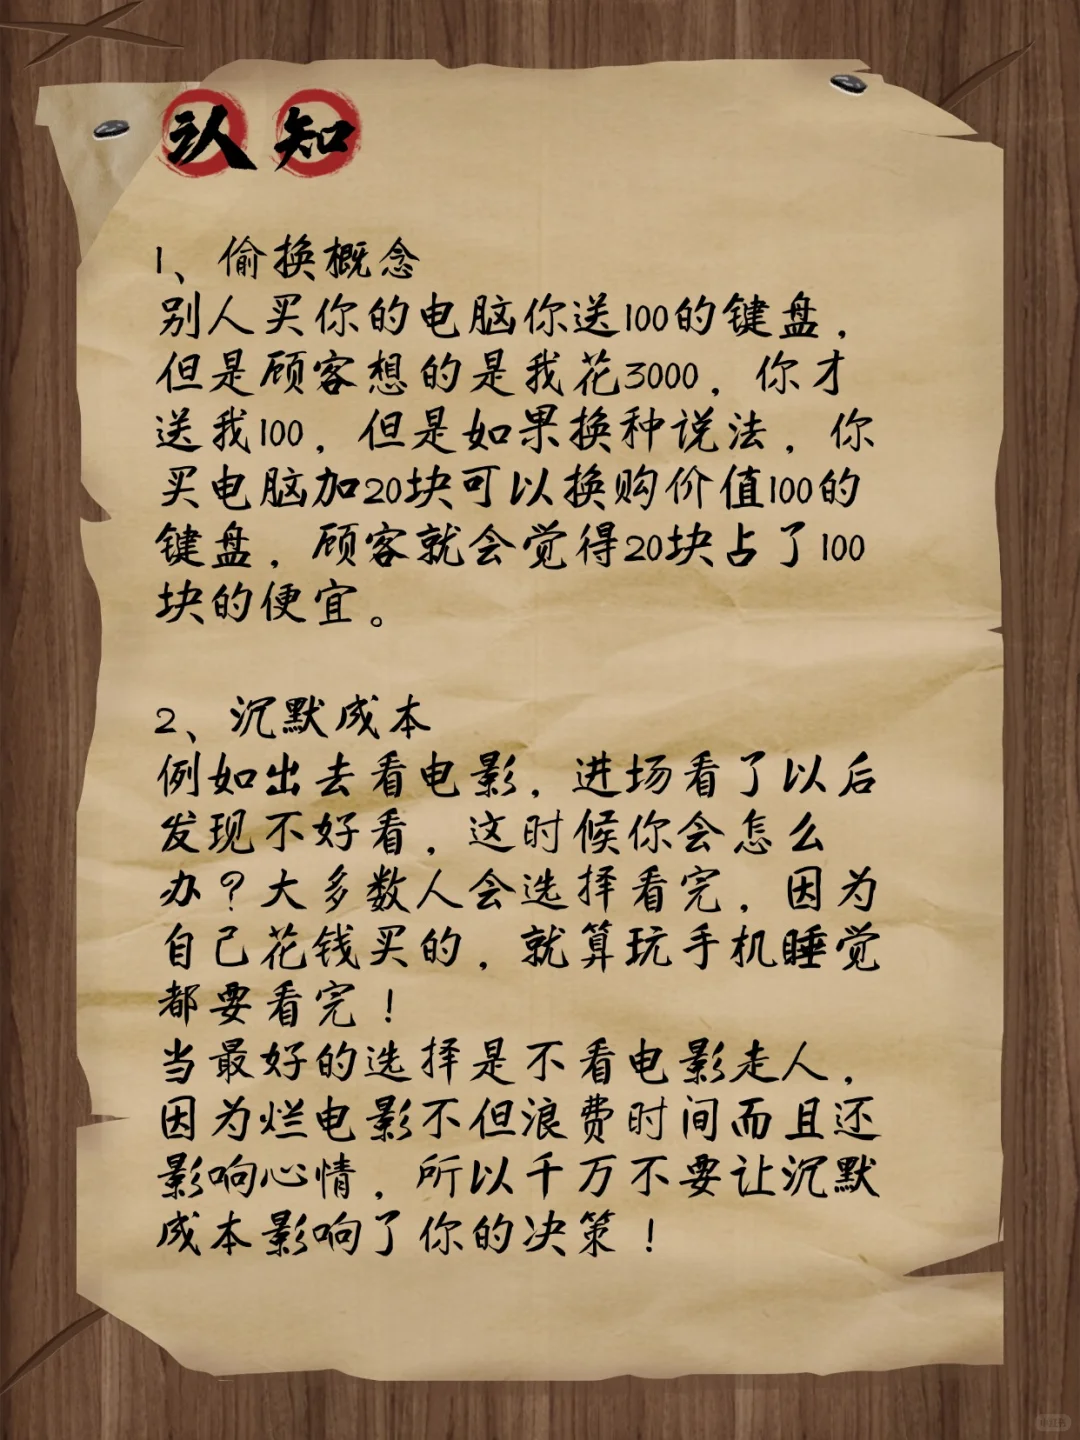 认知
1、偷换概念
别人买你的电脑你送100的键盘，
但是顾客想的是我花3000，你才
送我100，但是如果换种说法，你
买电脑加20块可以换购价值100的
键盘，顾客就会觉得20块占了100
块的便宜。
2、沉默成本
例如出去看电影，进场看了以后
发现不好看，这时候你会怎么
办？大多数人会选择看完，因为
自己花钱买的，就算玩手机睡觉
都要看完！
当最好的选择是不看电影走人，
因为烂电影不但浪费时间而且还
影响心情，所以千万不要让沉默
成本影响了你的决策！